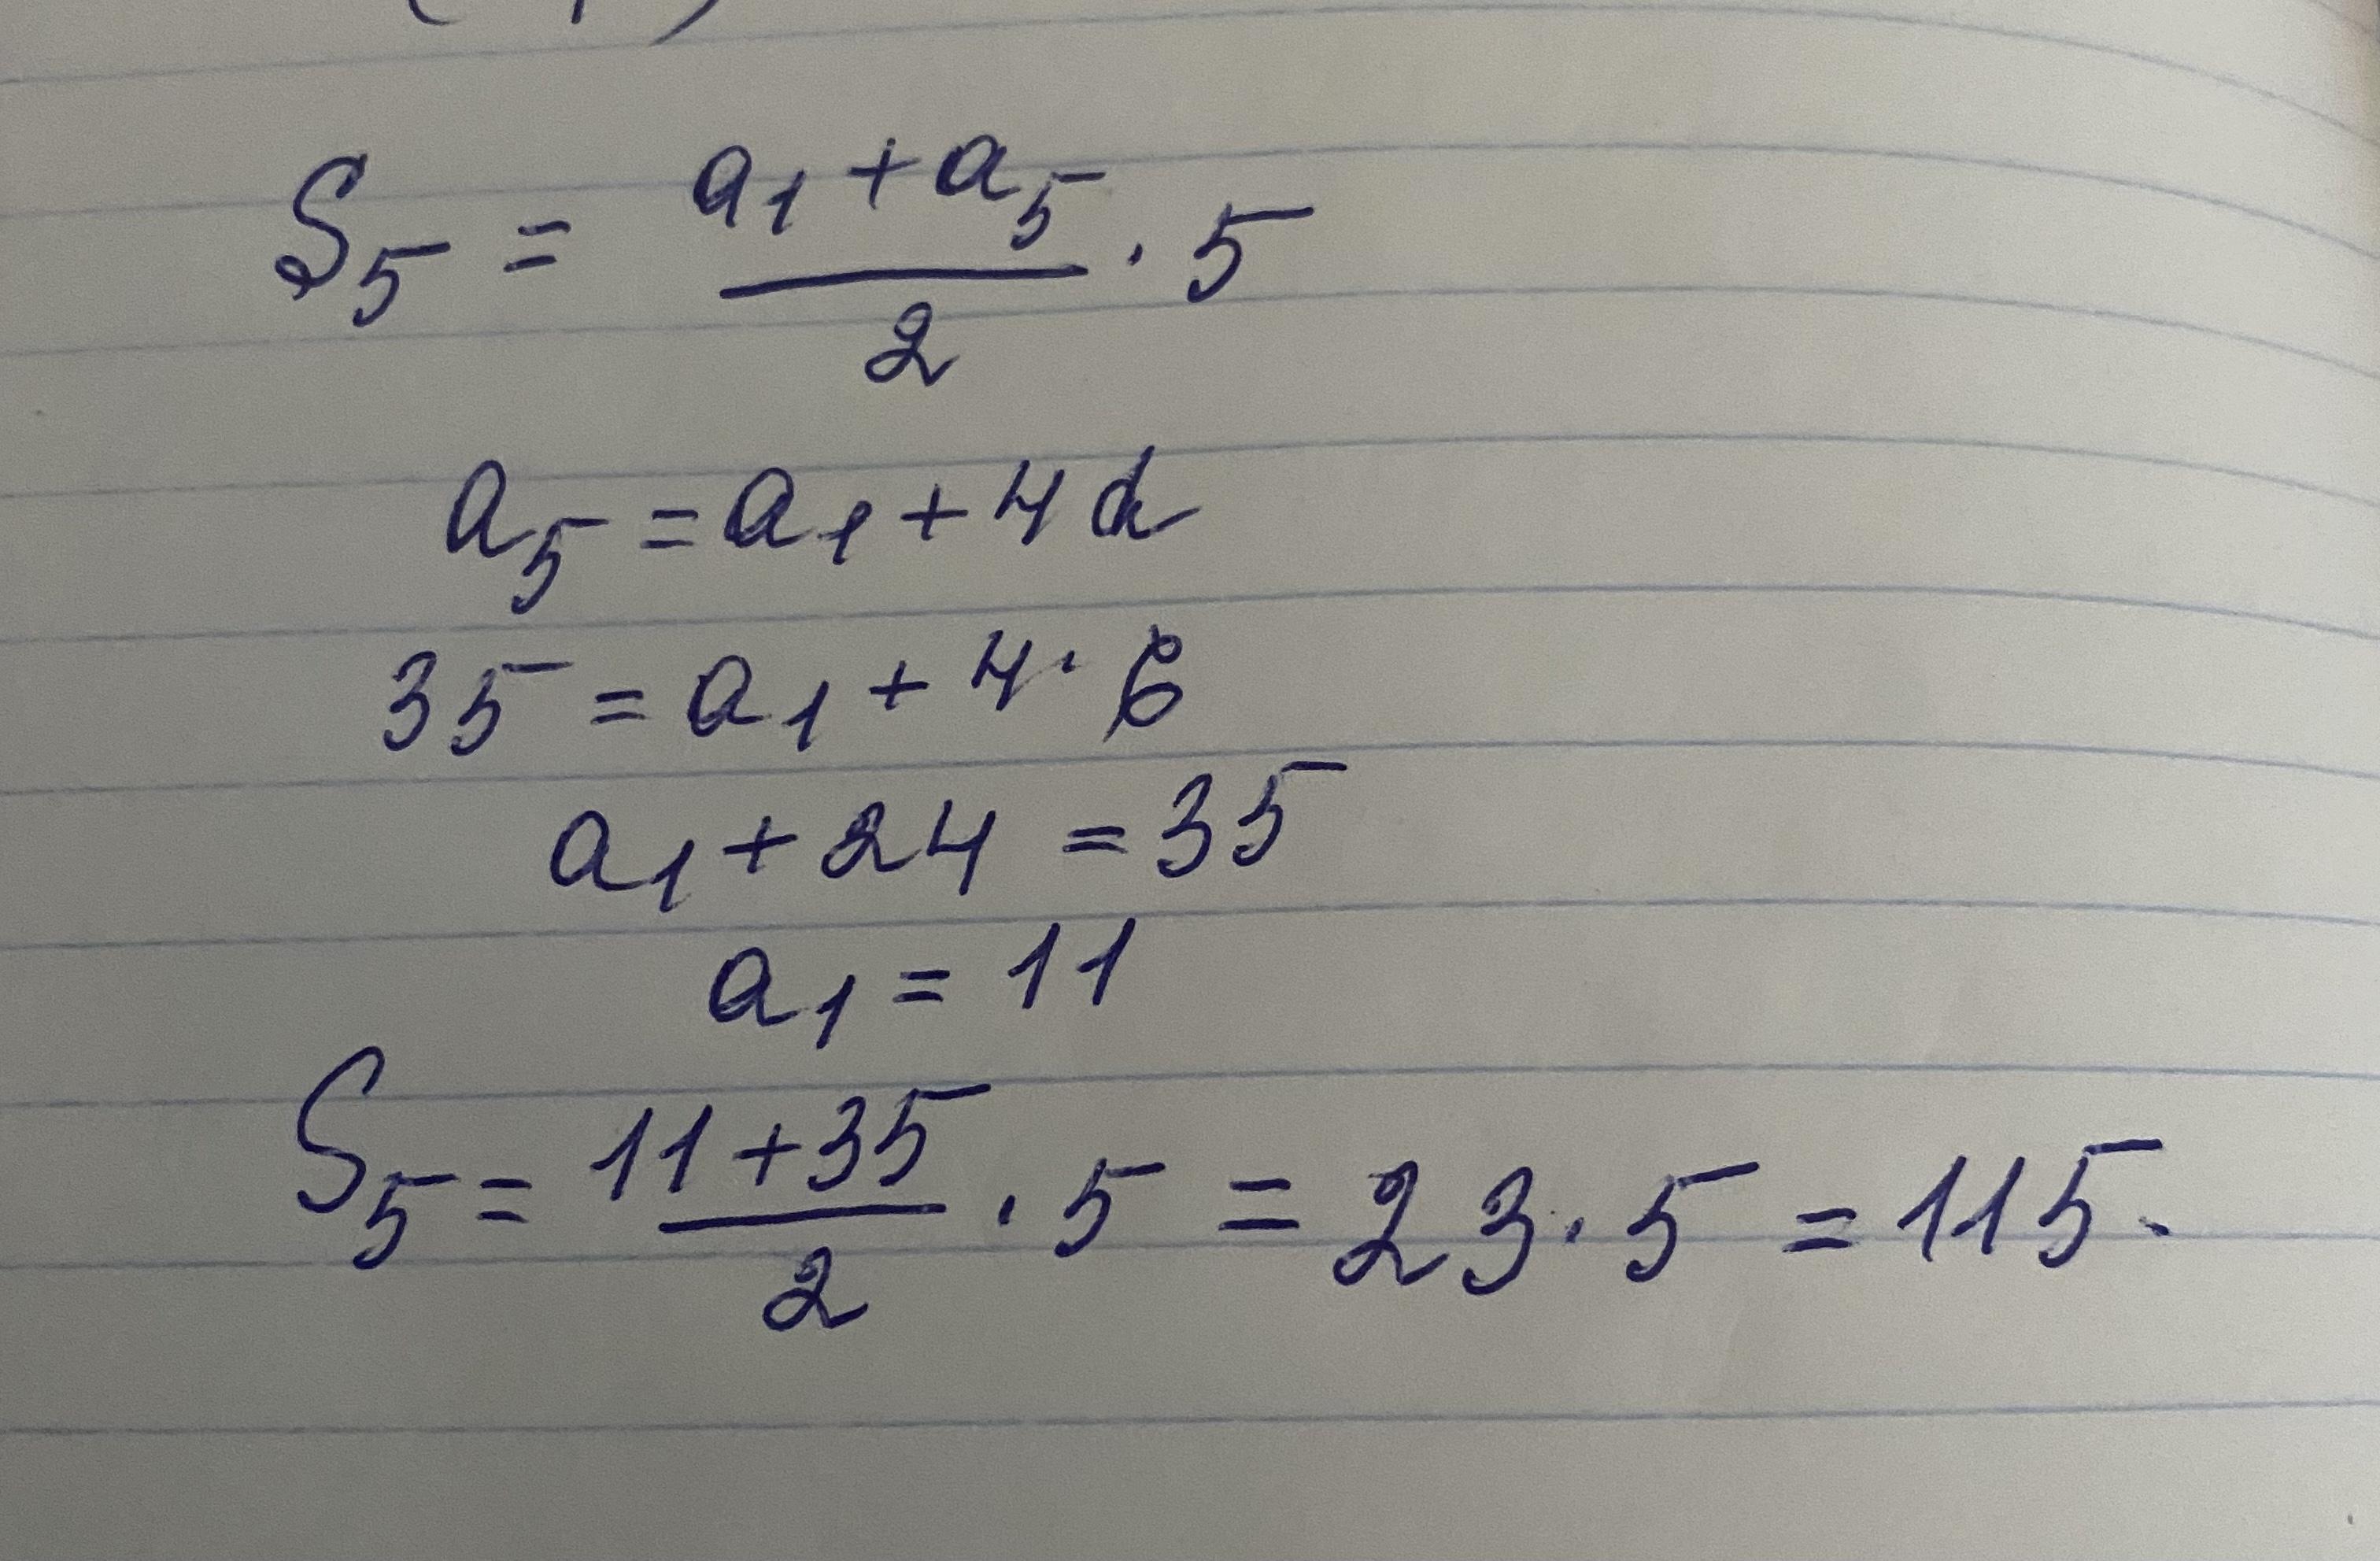 S₅ = (a₁ + a₅)/2 · 5
a₅ = a₁ + 4d
35 = a₁ + 4 · 6
a₁ + 24 = 35
a₁ = 11
S₅ = (11 + 35)/2 · 5 = 23 · 5 = 115.